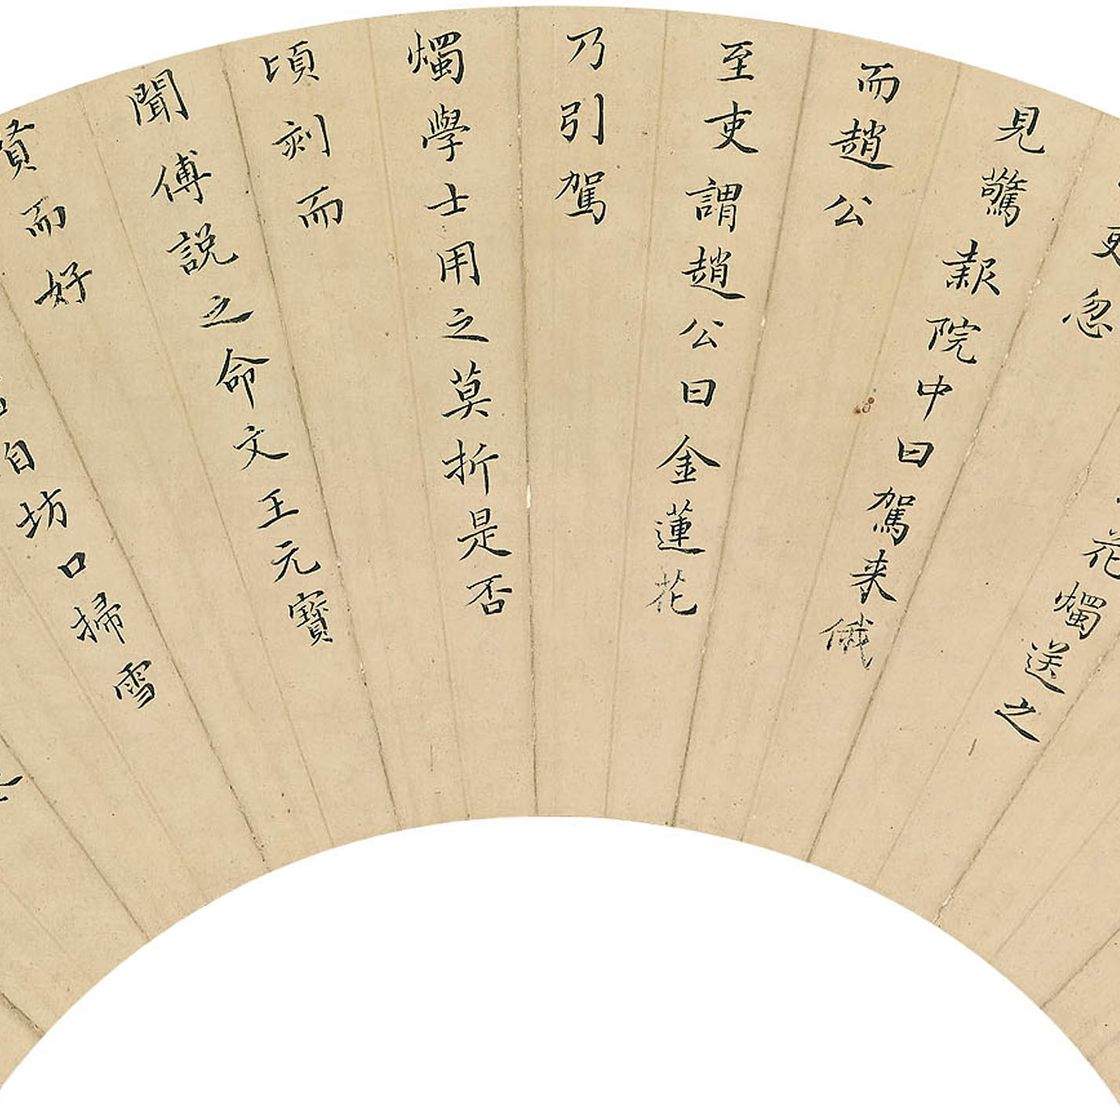 花燭送之
吏忽
見驚報院中曰駕来俄
而趙公
至吏謂趙公曰金蓮花
乃引駕
燭學士用之莫折是否
頃刻而
聞傅説之命文王元寶
而好
自坊口掃雪